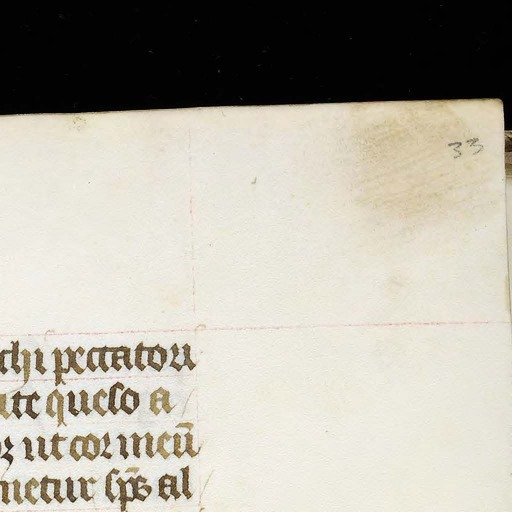 33
chi peccatori
ate queso a
ut cor meū
netur sp̄s al